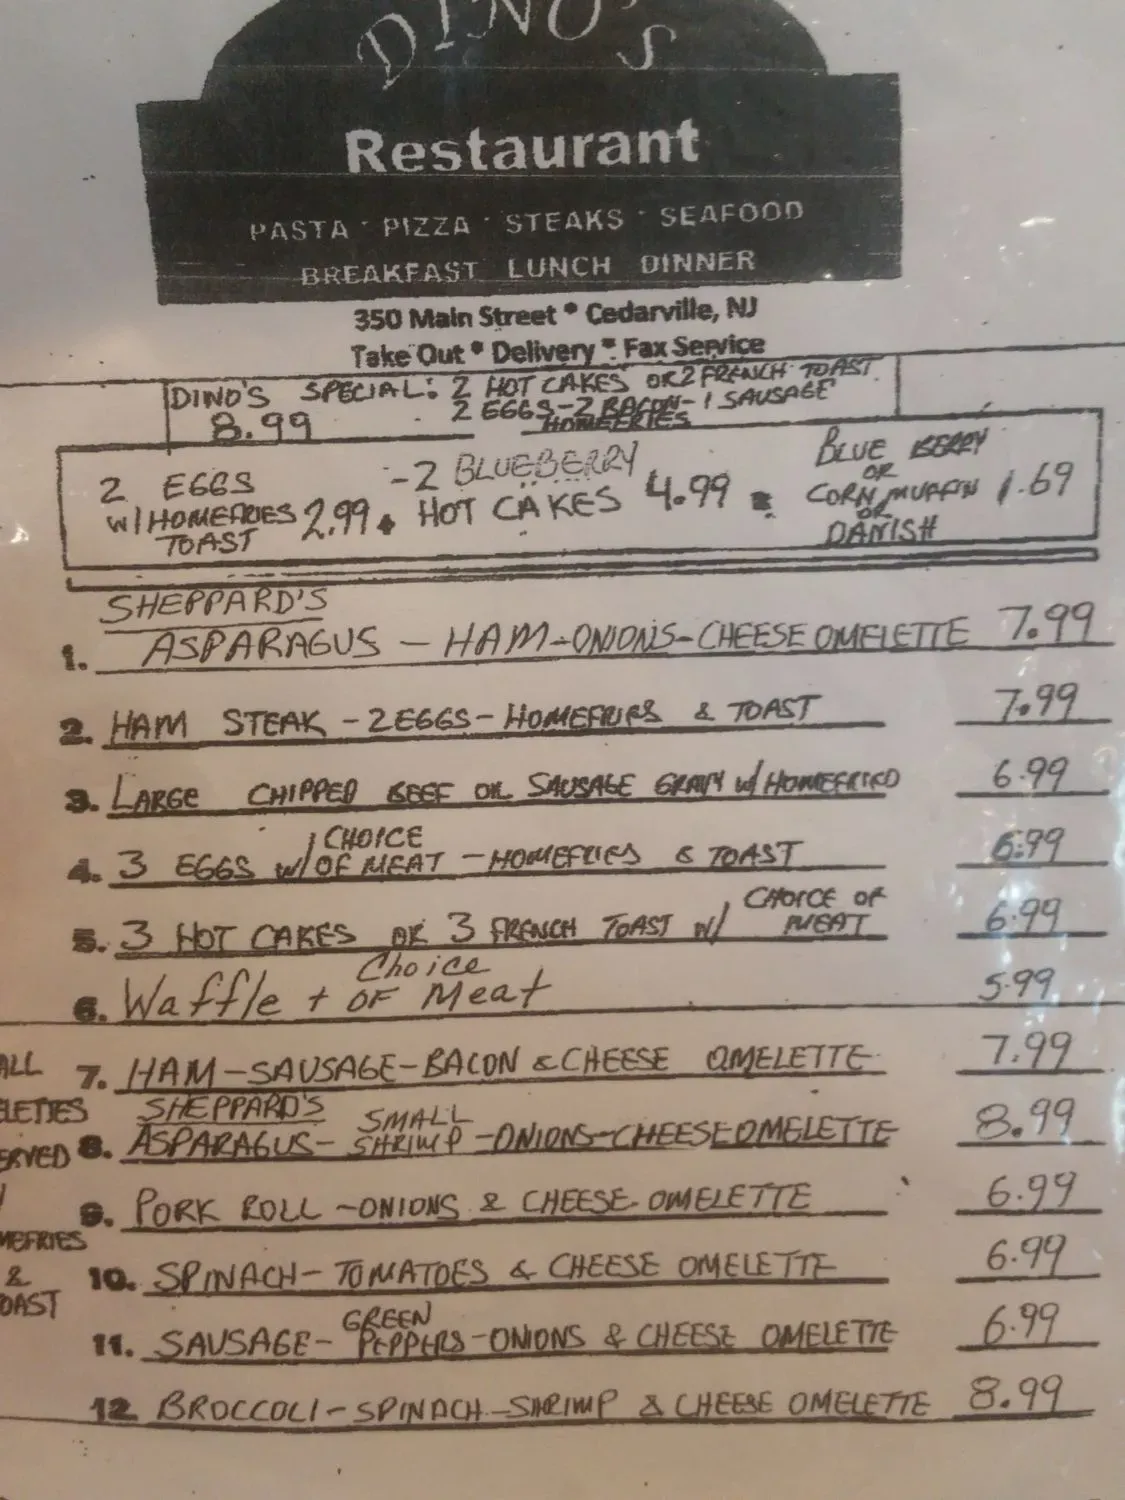 DINO'S
Restaurant
PASTA · PIZZA · STEAKS · SEAFOOD
BREAKFAST LUNCH DINNER
350 Main Street * Cedarville, NJ
Take Out * Delivery * Fax Service
DINO'S SPECIAL: 2 HOT CAKES OR 2 FRENCH TOAST
2 EGGS-2 BACON-1 SAUSAGE
8.99 HOMEFRIES
2 EGGS W/HOMEFRIES TOAST 2.99
-2 BLUEBERRY HOT CAKES 4.99
BLUE BERRY OR CORN MUFFIN OR DANISH 1.69
SHEPPARD'S
1. ASPARAGUS - HAM-ONIONS-CHEESE OMELETTE 7.99
2. HAM STEAK - 2 EGGS - HOMEFRIES & TOAST 7.99
3. LARGE CHIPPED BEEF OR SAUSAGE GRAVY W/HOMEFRIED 6.99
CHOICE
4. 3 EGGS W/ OF MEAT - HOMEFRIES & TOAST 6.99
CHOICE OF
5. 3 HOT CAKES OR 3 FRENCH TOAST W/ MEAT 6.99
Choice
6. Waffle + OF Meat 5.99
ALL
7. HAM-SAUSAGE-BACON & CHEESE OMELETTE 7.99
LETTES SHEPPARD'S SMALL
ERVED 8. ASPARAGUS- SHRIMP -ONIONS-CHEESE OMELETTE 8.99
9. PORK ROLL -ONIONS & CHEESE OMELETTE 6.99
MEFRIES
& 10. SPINACH- TOMATOES & CHEESE OMELETTE 6.99
OAST GREEN
11. SAUSAGE- PEPPERS-ONIONS & CHEESE OMELETTE 6.99
12 BROCCOLI-SPINACH-SHRIMP & CHEESE OMELETTE 8.99